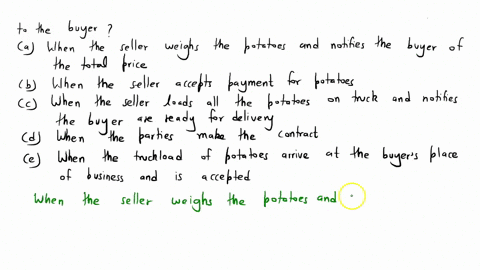 to the buyer ?
(a) When the seller weighs the potatoes and notifies the buyer of
the total price
(b) When the seller accepts payment for potatoes
(c) When the seller loads all the potatoes on truck and notifies
the buyer are ready for delivery
(d) When the parties make the contract
(e) When the truckload of potatoes arrive at the buyer's place
of business and is accepted
When the seller weighs the potatoes and